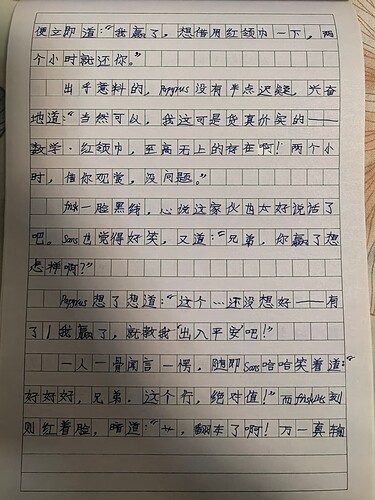 便立即道：“我赢了，想借用红领巾一下，两
个小时就还你。”
出乎意料的，Papyrus没有半点迟疑，兴奋
地道：“当然可以，我这可是货真价实的——
数学·红领巾，至高无上的存在啊！两个小
时，借你观赏，没问题。”
一脸黑线，心说这家伙也太好说话了
吧。Sans也觉得好笑，又道：“兄弟，你赢了想
怎样啊？”
Papyrus想了想道：“这个…还没想好——有
了！我赢了，就教我“出入平安”吧！”
一人一骨闻言一愣，随即Sans哈哈笑着道：“
好好好，兄弟。这个行，绝对值！”而 刻
则红着脸，暗道：“艹，翻车了啊！万一真输